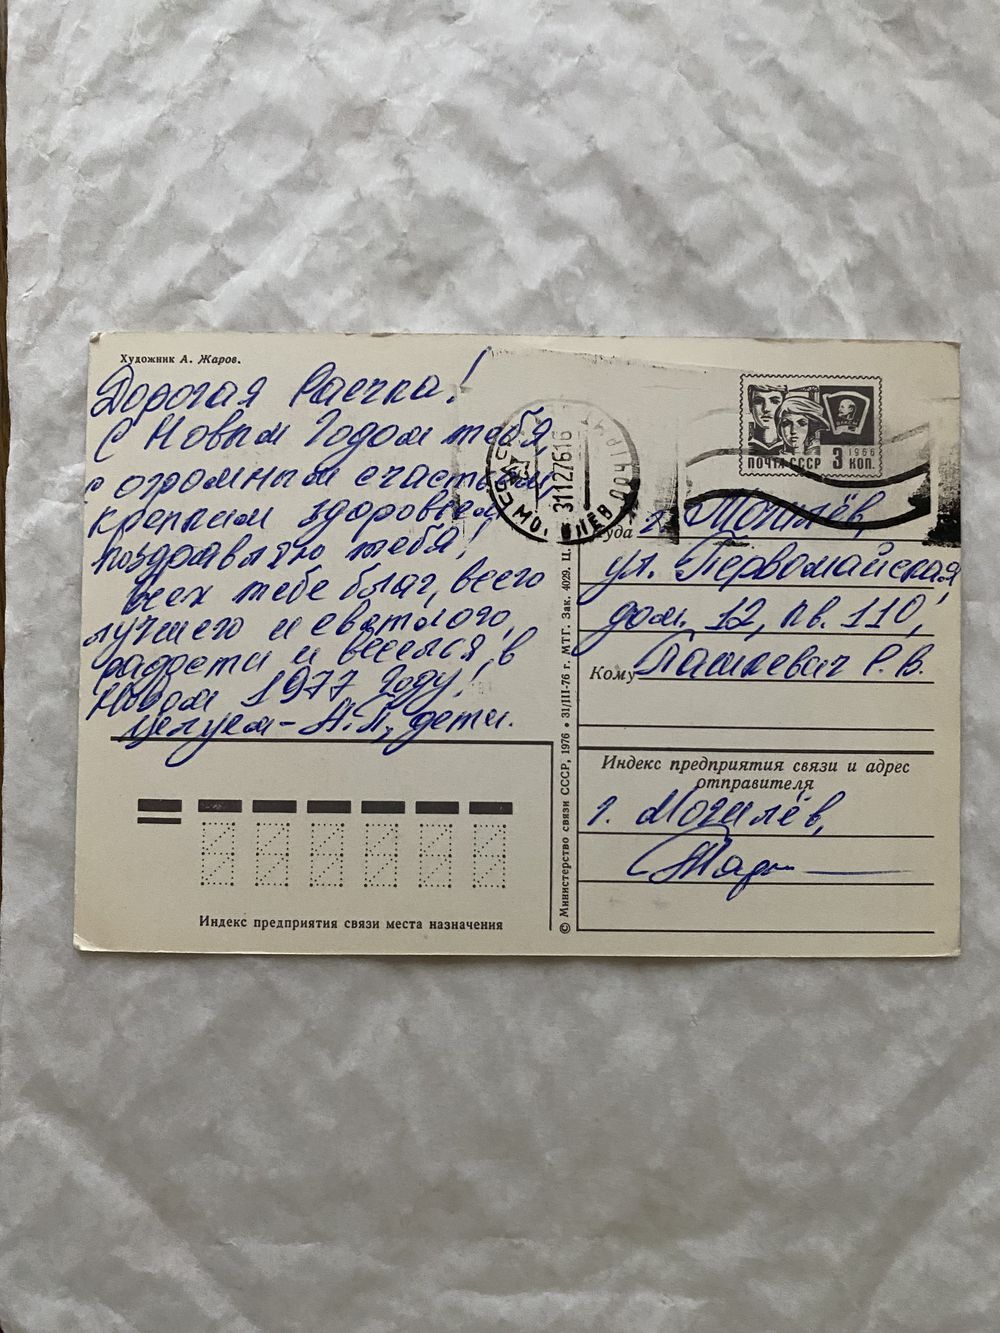 Художник А. Жаров.
Дорогая Раечка!
С Новым Годом тебя,
с огромным счастьем,
крепким здоровьем
поздравляю тебя!
Всех тебе благ, всего
лучшего и светлого,
радости и веселья в
Новом 1977 Году!
Целуем - А.П., дети.
311276 16
МОГИЛЕВ
ПОЧТА СССР 3 КОП.
1966
ВЛКСМ
Куда г. Могилёв,
ул. Первомайская,
дом. 12, кв. 110,
Кому Пашкевич Р. В.
Индекс предприятия связи и адрес
отправителя
г. Могилёв,
© Министерство связи СССР, 1976 • 31/III-76 г. МТГ. Зак. 4029. Ц.
Индекс предприятия связи места назначения